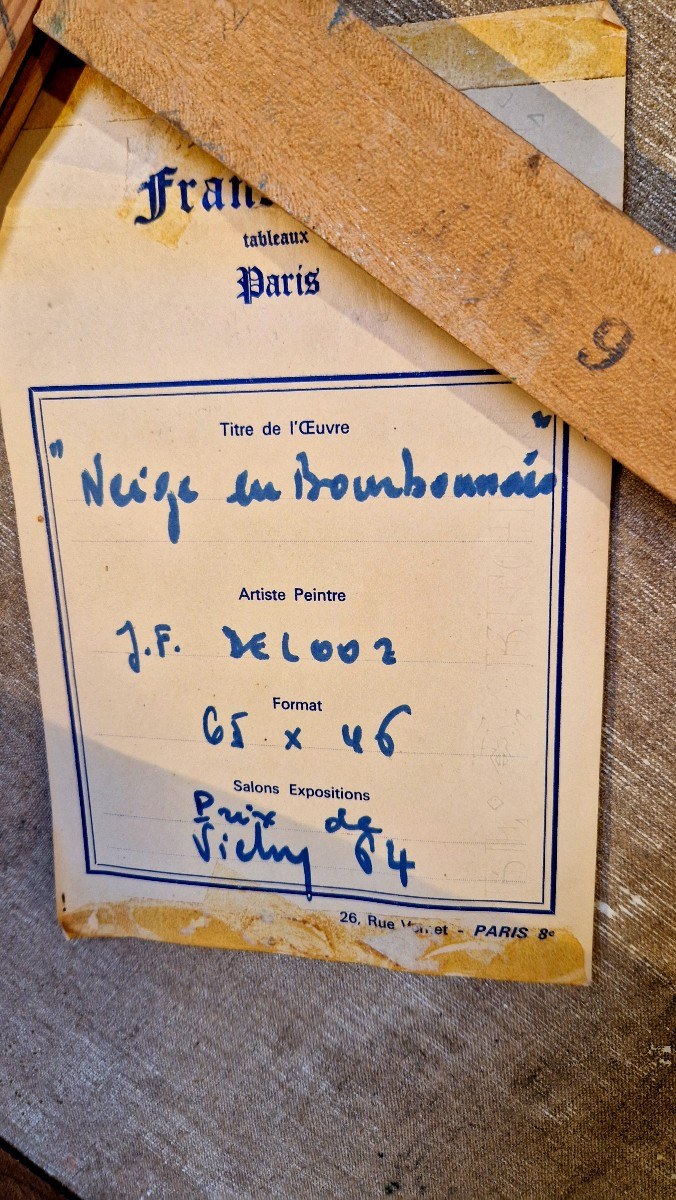 tableaux
Paris
9
Titre de l'Œuvre
" Neige en Bourbonnais "
Artiste Peintre
J.F. DELOOZ
Format
65 x 46
Salons Expositions
Prix de
Vichy 64
26, Rue - PARIS 8e